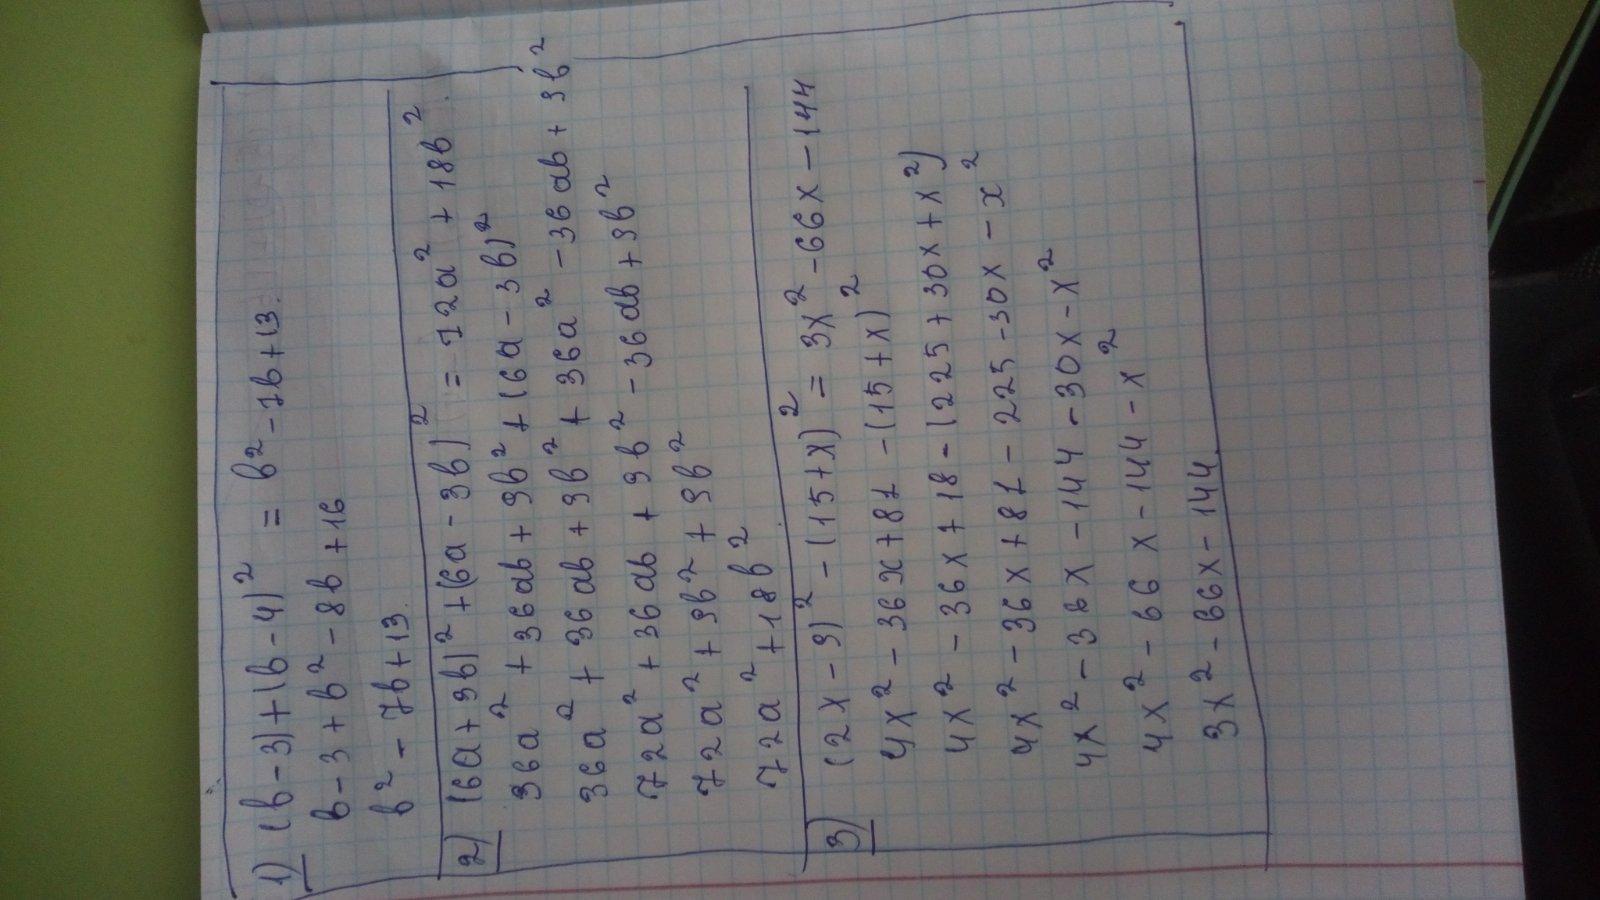 1) (b-3)+(b-4)² = b²-7b+13.
b-3+b²-8b+16
b²-7b+13.
2) (6a+3b)²+(6a-3b)² = 72a²+18b².
36a²+36ab+9b²+(6a-3b)²
36a²+36ab+9b²+36a²-36ab+9b²
72a²+36ab+9b²-36ab+9b²
72a²+9b²+9b²
72a²+18b²
3) (2x-9)²-(15+x)² = 3x²-66x-144
4x²-36x+81-(15+x)²
4x²-36x+18-(225+30x+x²)
4x²-36x+81-225-30x-x²
4x²-36x-144-30x-x²
4x²-66x-144-x²
3x²-66x-144.